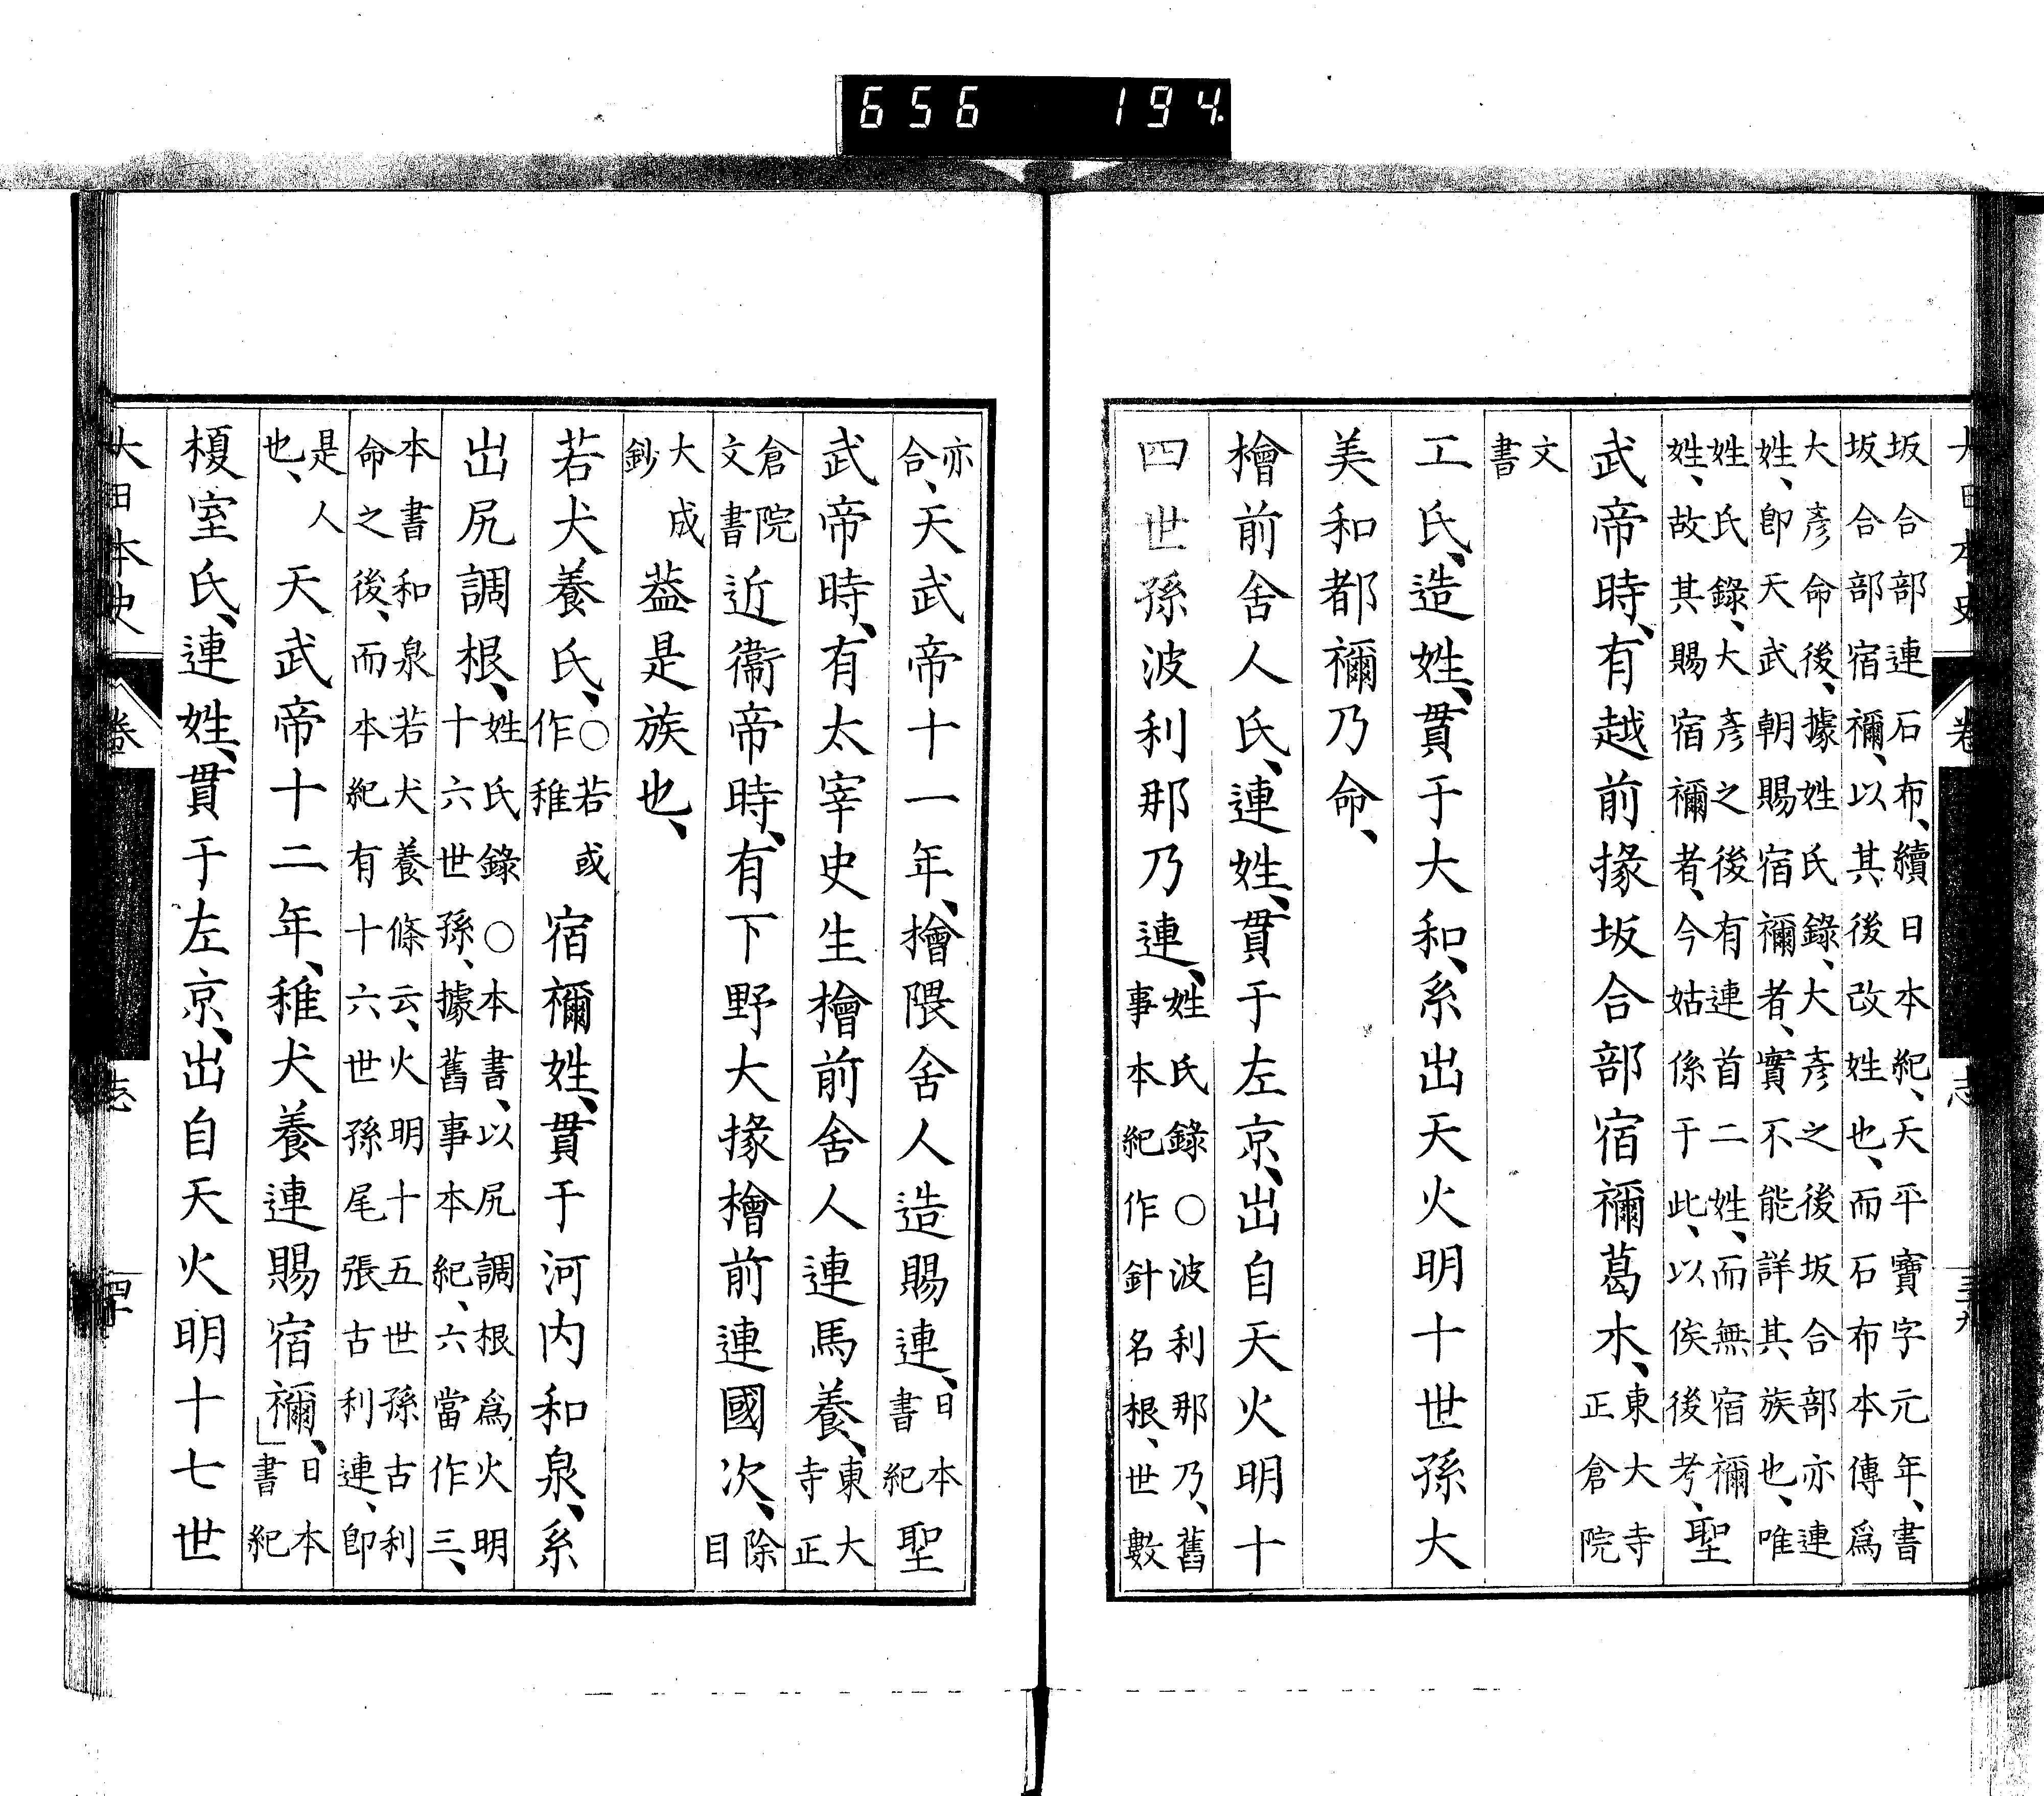 656 194
坂合部連石布、續日本紀、天平寶字元年、書
坂合部宿禰、以其後改姓也、而石布本傳爲
大彥命後、據姓氏錄、大彥之後坂合部亦連
姓、卽天武朝賜宿禰者、實不能詳其族也、唯
姓氏錄、大彥之後有連首二姓、而無宿禰
姓、故其賜宿禰者、今姑係于此、以俟後考、聖
武帝時、有越前掾坂合部宿禰葛木、東大寺正倉院
文書
工氏、造姓、貫于大和、系出天火明十世孫大
美和都禰乃命、
檜前舍人氏、連姓、貫于左京、出自天火明十
四世孫波利那乃連、姓氏錄○波利那乃、舊事本紀作針名根、世數
亦合、天武帝十一年、檜隈舍人造賜連、日本書紀聖
武帝時、有太宰史生檜前舍人連馬養、東大寺正
倉院文書近衞帝時、有下野大掾檜前連國次、除目
大成鈔葢是族也、
若犬養氏、○若或作稚宿禰姓、貫于河内和泉、系
出尻調根、姓氏錄○本書、以尻調根爲火明十六世孫、據舊事本紀、六當作三、
本書和泉若犬養條云、火明十五世孫古利命之後、而本紀有十六世孫尾張古利連、卽
是人也、天武帝十二年、稚犬養連賜宿禰、日本書紀
榎室氏、連姓、貫于左京、出自天火明十七世
大日本史 卷 志 四十